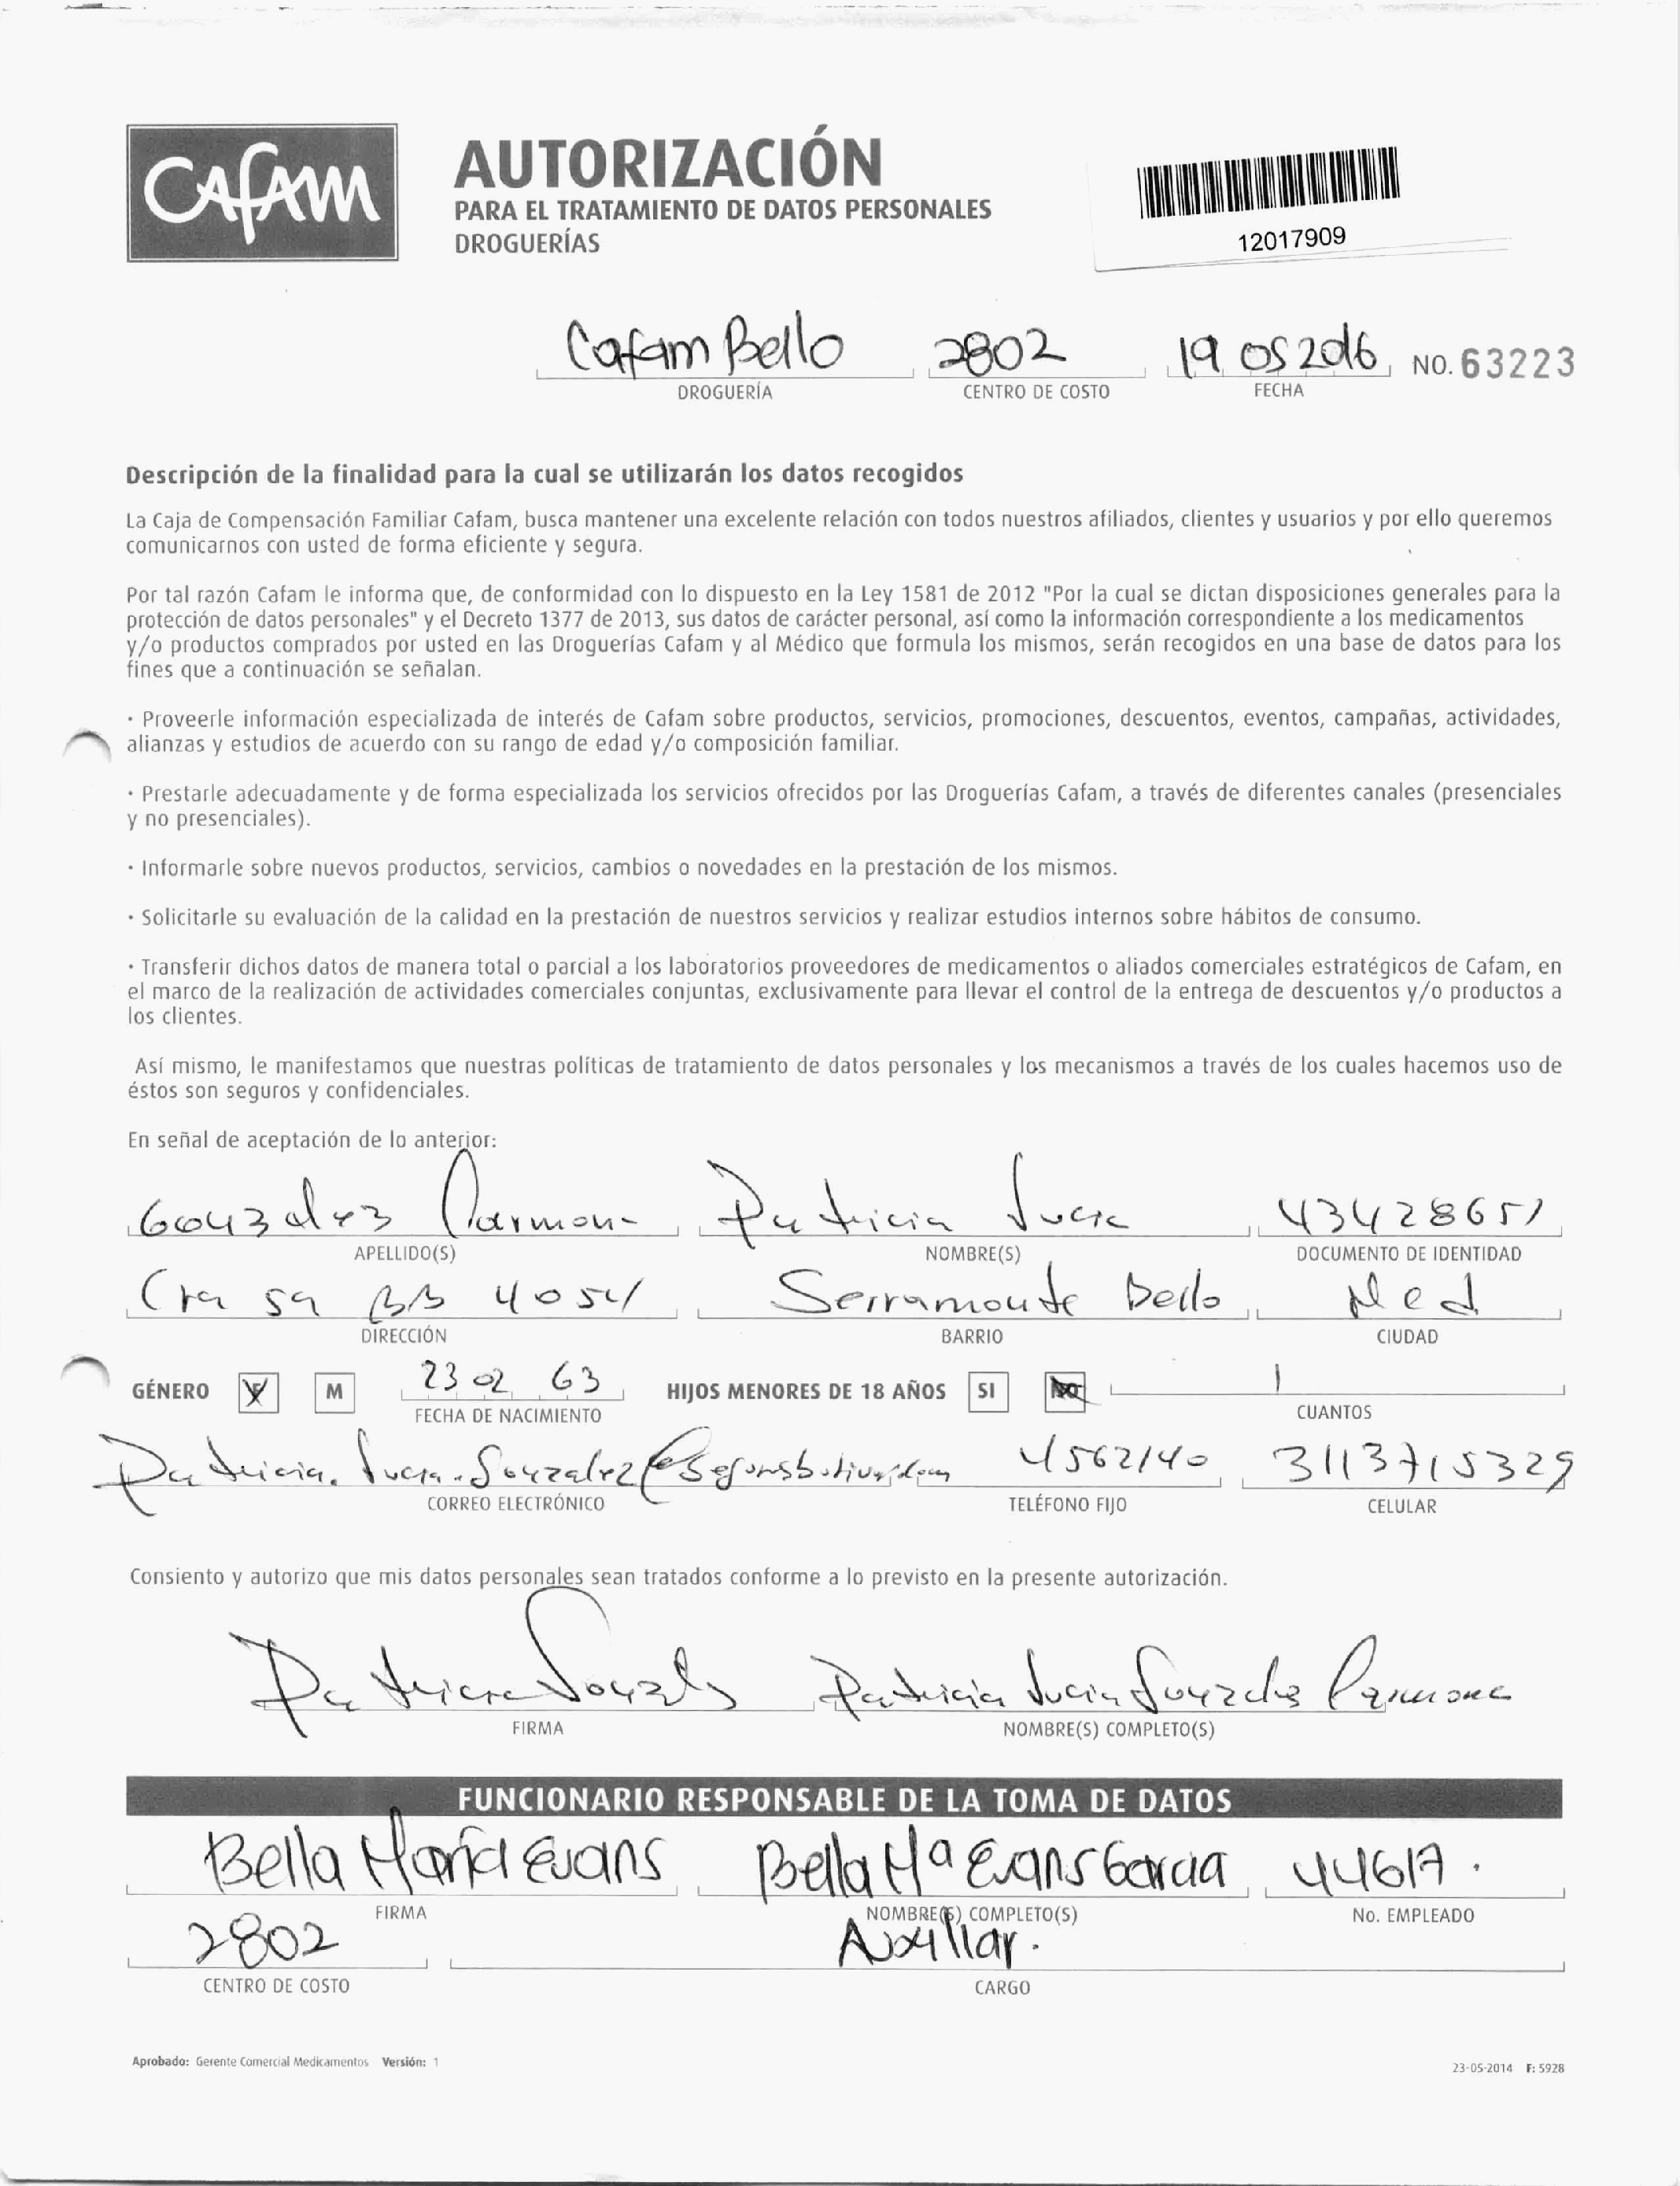 CAFAM
AUTORIZACIÓN
PARA EL TRATAMIENTO DE DATOS PERSONALES
DROGUERÍAS
12017909
Cafam Bello 2802 19 05 2016 NO. 63223
DROGUERÍA CENTRO DE COSTO FECHA
Descripción de la finalidad para la cual se utilizarán los datos recogidos
La Caja de Compensación Familiar Cafam, busca mantener una excelente relación con todos nuestros afiliados, clientes y usuarios y por ello queremos
comunicarnos con usted de forma eficiente y segura.
Por tal razón Cafam le informa que, de conformidad con lo dispuesto en la Ley 1581 de 2012 "Por la cual se dictan disposiciones generales para la
protección de datos personales" y el Decreto 1377 de 2013, sus datos de carácter personal, así como la información correspondiente a los medicamentos
y/o productos comprados por usted en las Droguerías Cafam y al Médico que formula los mismos, serán recogidos en una base de datos para los
fines que a continuación se señalan.
· Proveerle información especializada de interés de Cafam sobre productos, servicios, promociones, descuentos, eventos, campañas, actividades,
alianzas y estudios de acuerdo con su rango de edad y/o composición familiar.
· Prestarle adecuadamente y de forma especializada los servicios ofrecidos por las Droguerías Cafam, a través de diferentes canales (presenciales
y no presenciales).
· Informarle sobre nuevos productos, servicios, cambios o novedades en la prestación de los mismos.
· Solicitarle su evaluación de la calidad en la prestación de nuestros servicios y realizar estudios internos sobre hábitos de consumo.
· Transferir dichos datos de manera total o parcial a los laboratorios proveedores de medicamentos o aliados comerciales estratégicos de Cafam, en
el marco de la realización de actividades comerciales conjuntas, exclusivamente para llevar el control de la entrega de descuentos y/o productos a
los clientes.
Así mismo, le manifestamos que nuestras políticas de tratamiento de datos personales y los mecanismos a través de los cuales hacemos uso de
éstos son seguros y confidenciales.
En señal de aceptación de lo anterior:
Gonzalez Carmona Patricia Lucia 43428651
APELLIDO(S) NOMBRE(S) DOCUMENTO DE IDENTIDAD
Cra 59 BB 4054 Serramonte Bello Med
DIRECCIÓN BARRIO CIUDAD
GÉNERO F M 23 02 63 HIJOS MENORES DE 18 AÑOS SI NO 1
FECHA DE NACIMIENTO CUANTOS
Patricia.Lucia.Gonzalez@ 4562140 3113715329
CORREO ELECTRÓNICO TELÉFONO FIJO CELULAR
Consiento y autorizo que mis datos personales sean tratados conforme a lo previsto en la presente autorización.
Patricia Gonzalez Patricia Lucia Gonzalez Carmona
FIRMA NOMBRE(S) COMPLETO(S)
FUNCIONARIO RESPONSABLE DE LA TOMA DE DATOS
Bella Maria Evans Bella Mª Evans Garcia 44617.
FIRMA NOMBRE(S) COMPLETO(S) No. EMPLEADO
2802 Auxiliar.
CENTRO DE COSTO CARGO
Aprobado: Gerente Comercial Medicamentos Versión: 1 23-05-2014 F: 5928